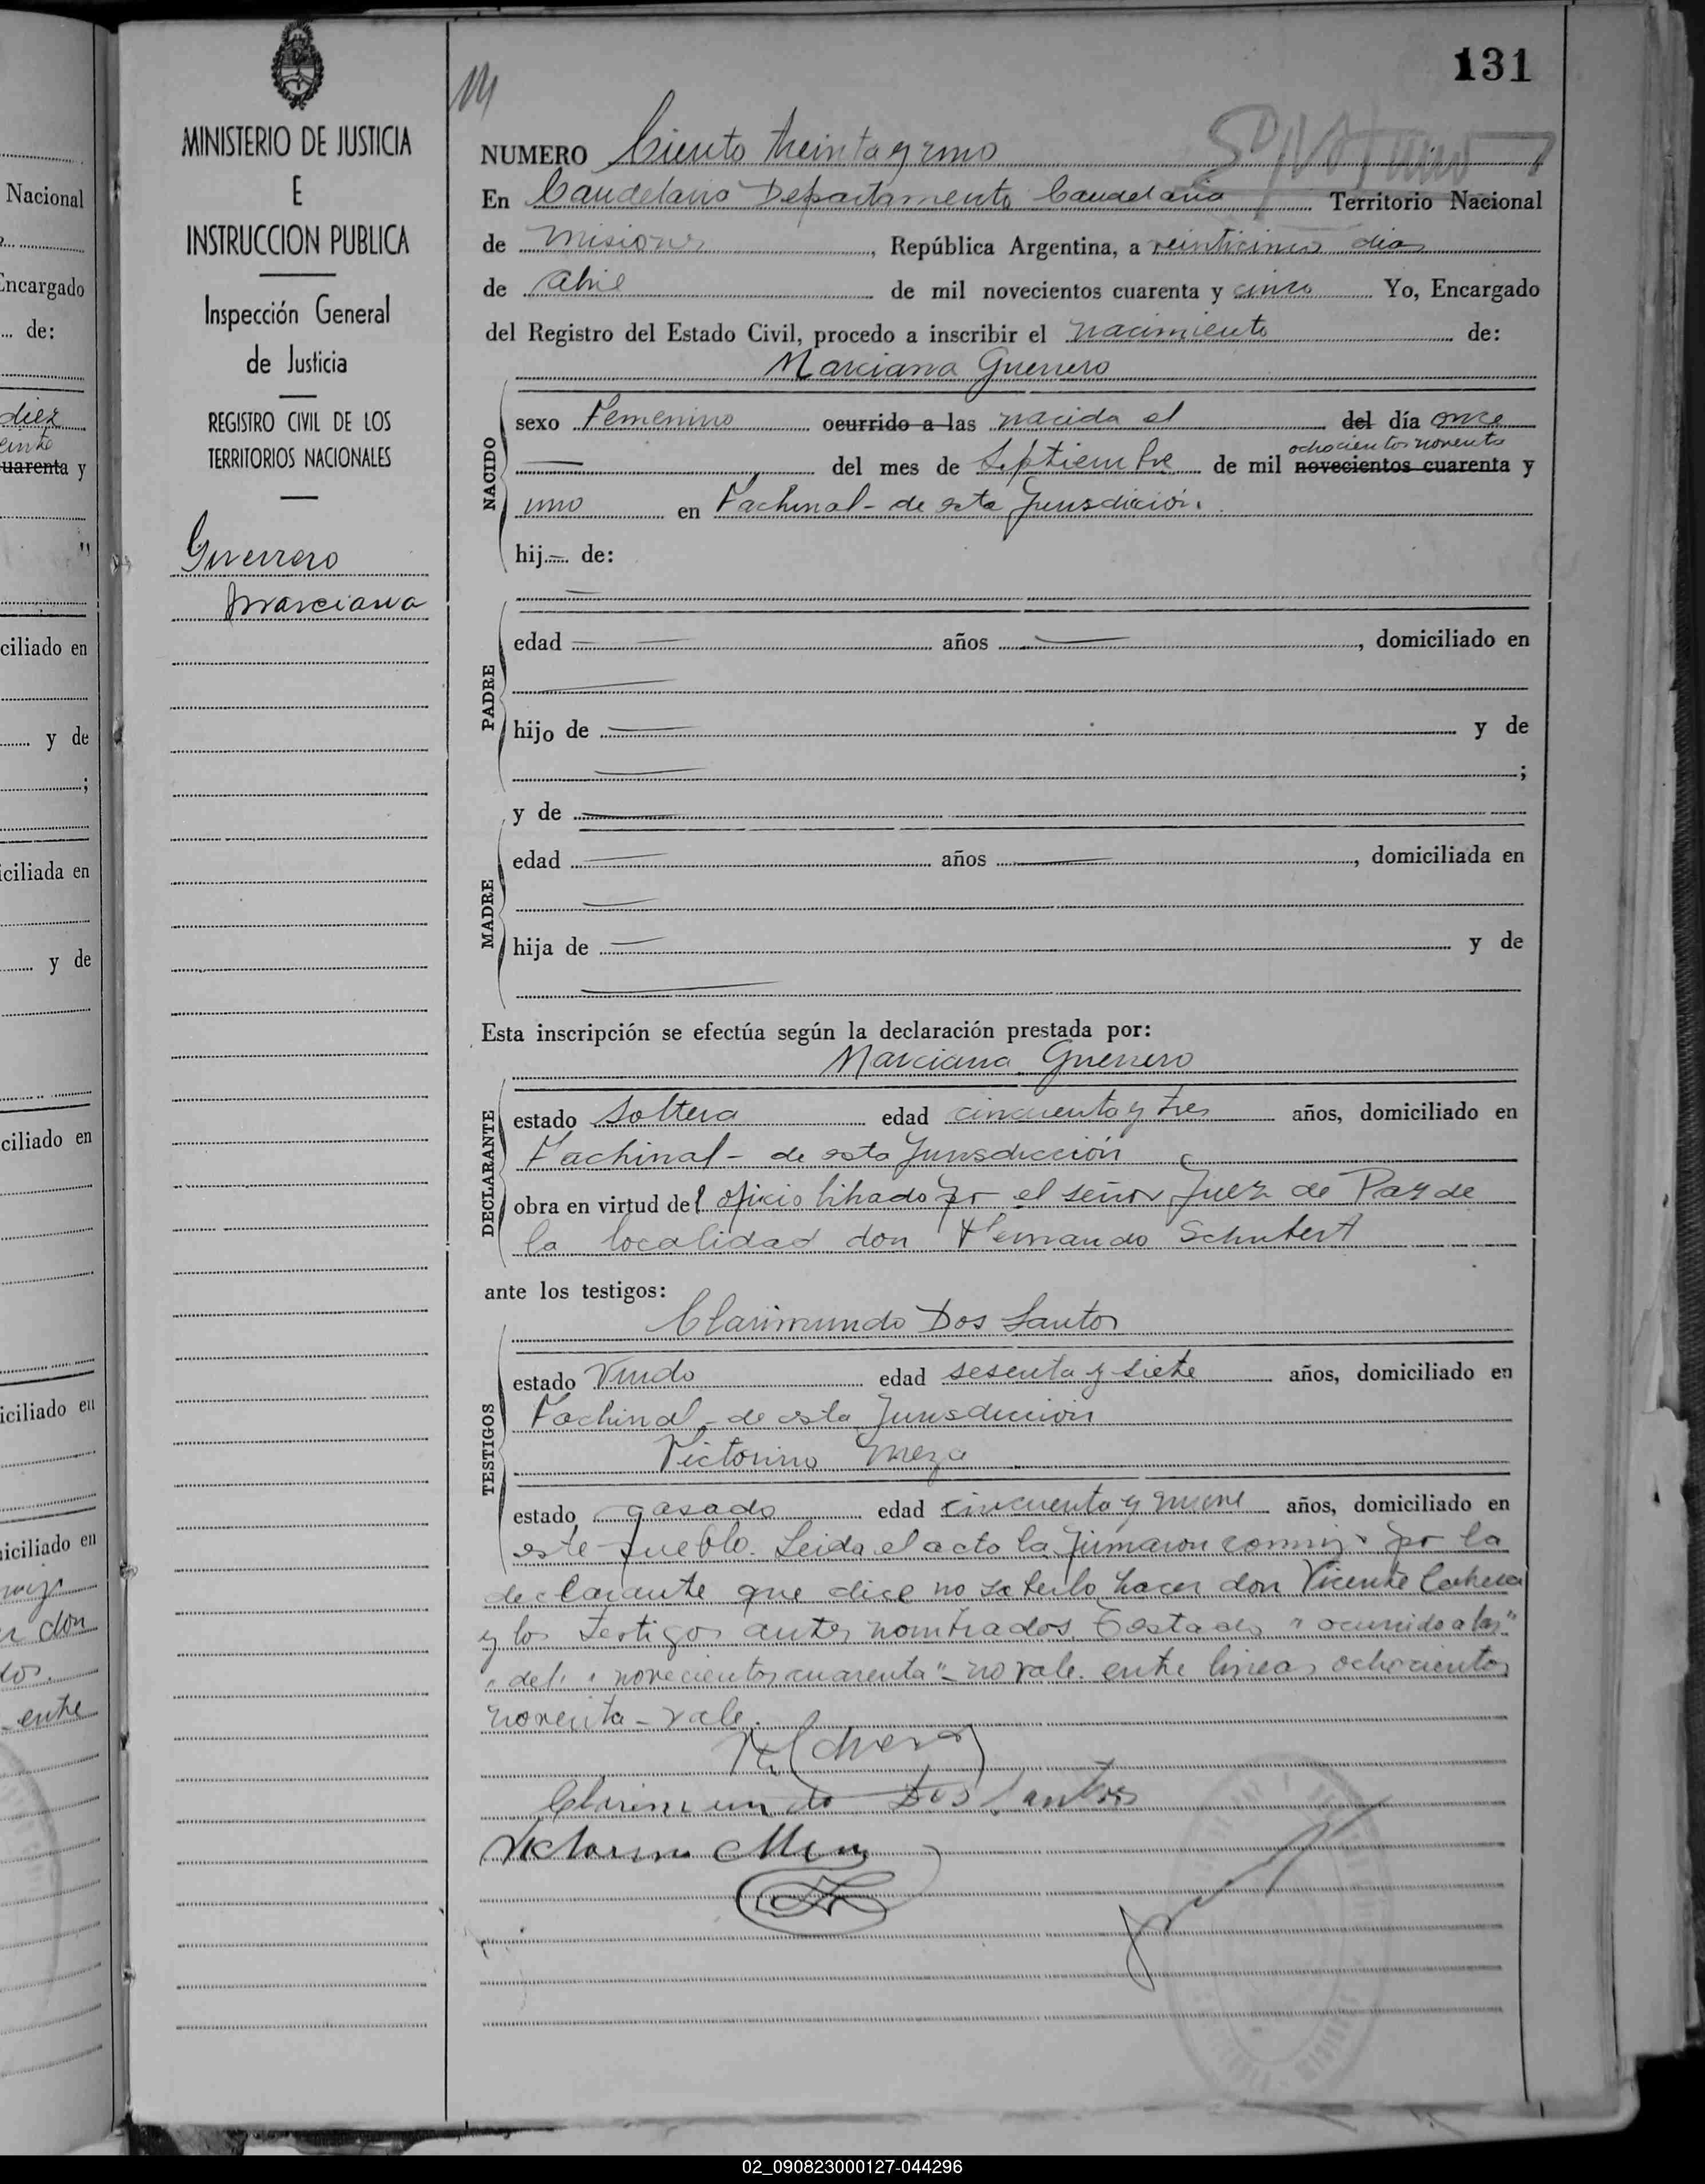 131
MINISTERIO DE JUSTICIA
E
INSTRUCCION PUBLICA
Inspección General
de Justicia
REGISTRO CIVIL DE LOS
TERRITORIOS NACIONALES
Guerrero
Marciana
NUMERO Ciento treinta y uno
En Candelaria Departamento Candelaria Territorio Nacional
de Misiones, República Argentina, a veinticinco dias
de Abril de mil novecientos cuarenta y cinco Yo, Encargado
del Registro del Estado Civil, procedo a inscribir el nacimiento de:
Marciana Guerrero
NACIDO
sexo Femenino ocurrido a las nacida el del día once
ochocientos noventa
del mes de Septiembre de mil novecientos cuarenta y
uno en Fachinal - de esta Jurisdicion.
hij de:
PADRE
edad años , domiciliado en
hijo de y de
;
y de
MADRE
edad años , domiciliada en
hija de y de
Esta inscripción se efectúa según la declaración prestada por:
Marciana Guerrero
DECLARANTE
estado Soltera edad cincuenta y tres años, domiciliado en
Fachinal - de esta Jurisdicción
obra en virtud del oficio librado por el señor Juez de Paz de
la localidad don Hernando Schubert
ante los testigos:
Clarimundo Dos Santos
TESTIGOS
estado Viudo edad sesenta y siete años, domiciliado en
Fachinal - de esta Jurisdiccion
Victorino Meza
estado casado edad cincuenta y nueve años, domiciliado en
este pueblo. Leida el acta la firmaron conmigo por la
declarante que dice no saberlo hacer don Vicente
y los testigos antes nombrados. Testado "ocurrido a las"
"del" "novecientos cuarenta" - no vale. entre lineas ochocientos
noventa - vale.
Clarimundo Dos Santos
Victorino Meza
Nacional
Encargado
de:
diez
uarenta y
ciliado en
y de
;
iciliada en
y de
ciliado en
iciliado en
iciliado en
don
entre
02_090823000127-044296